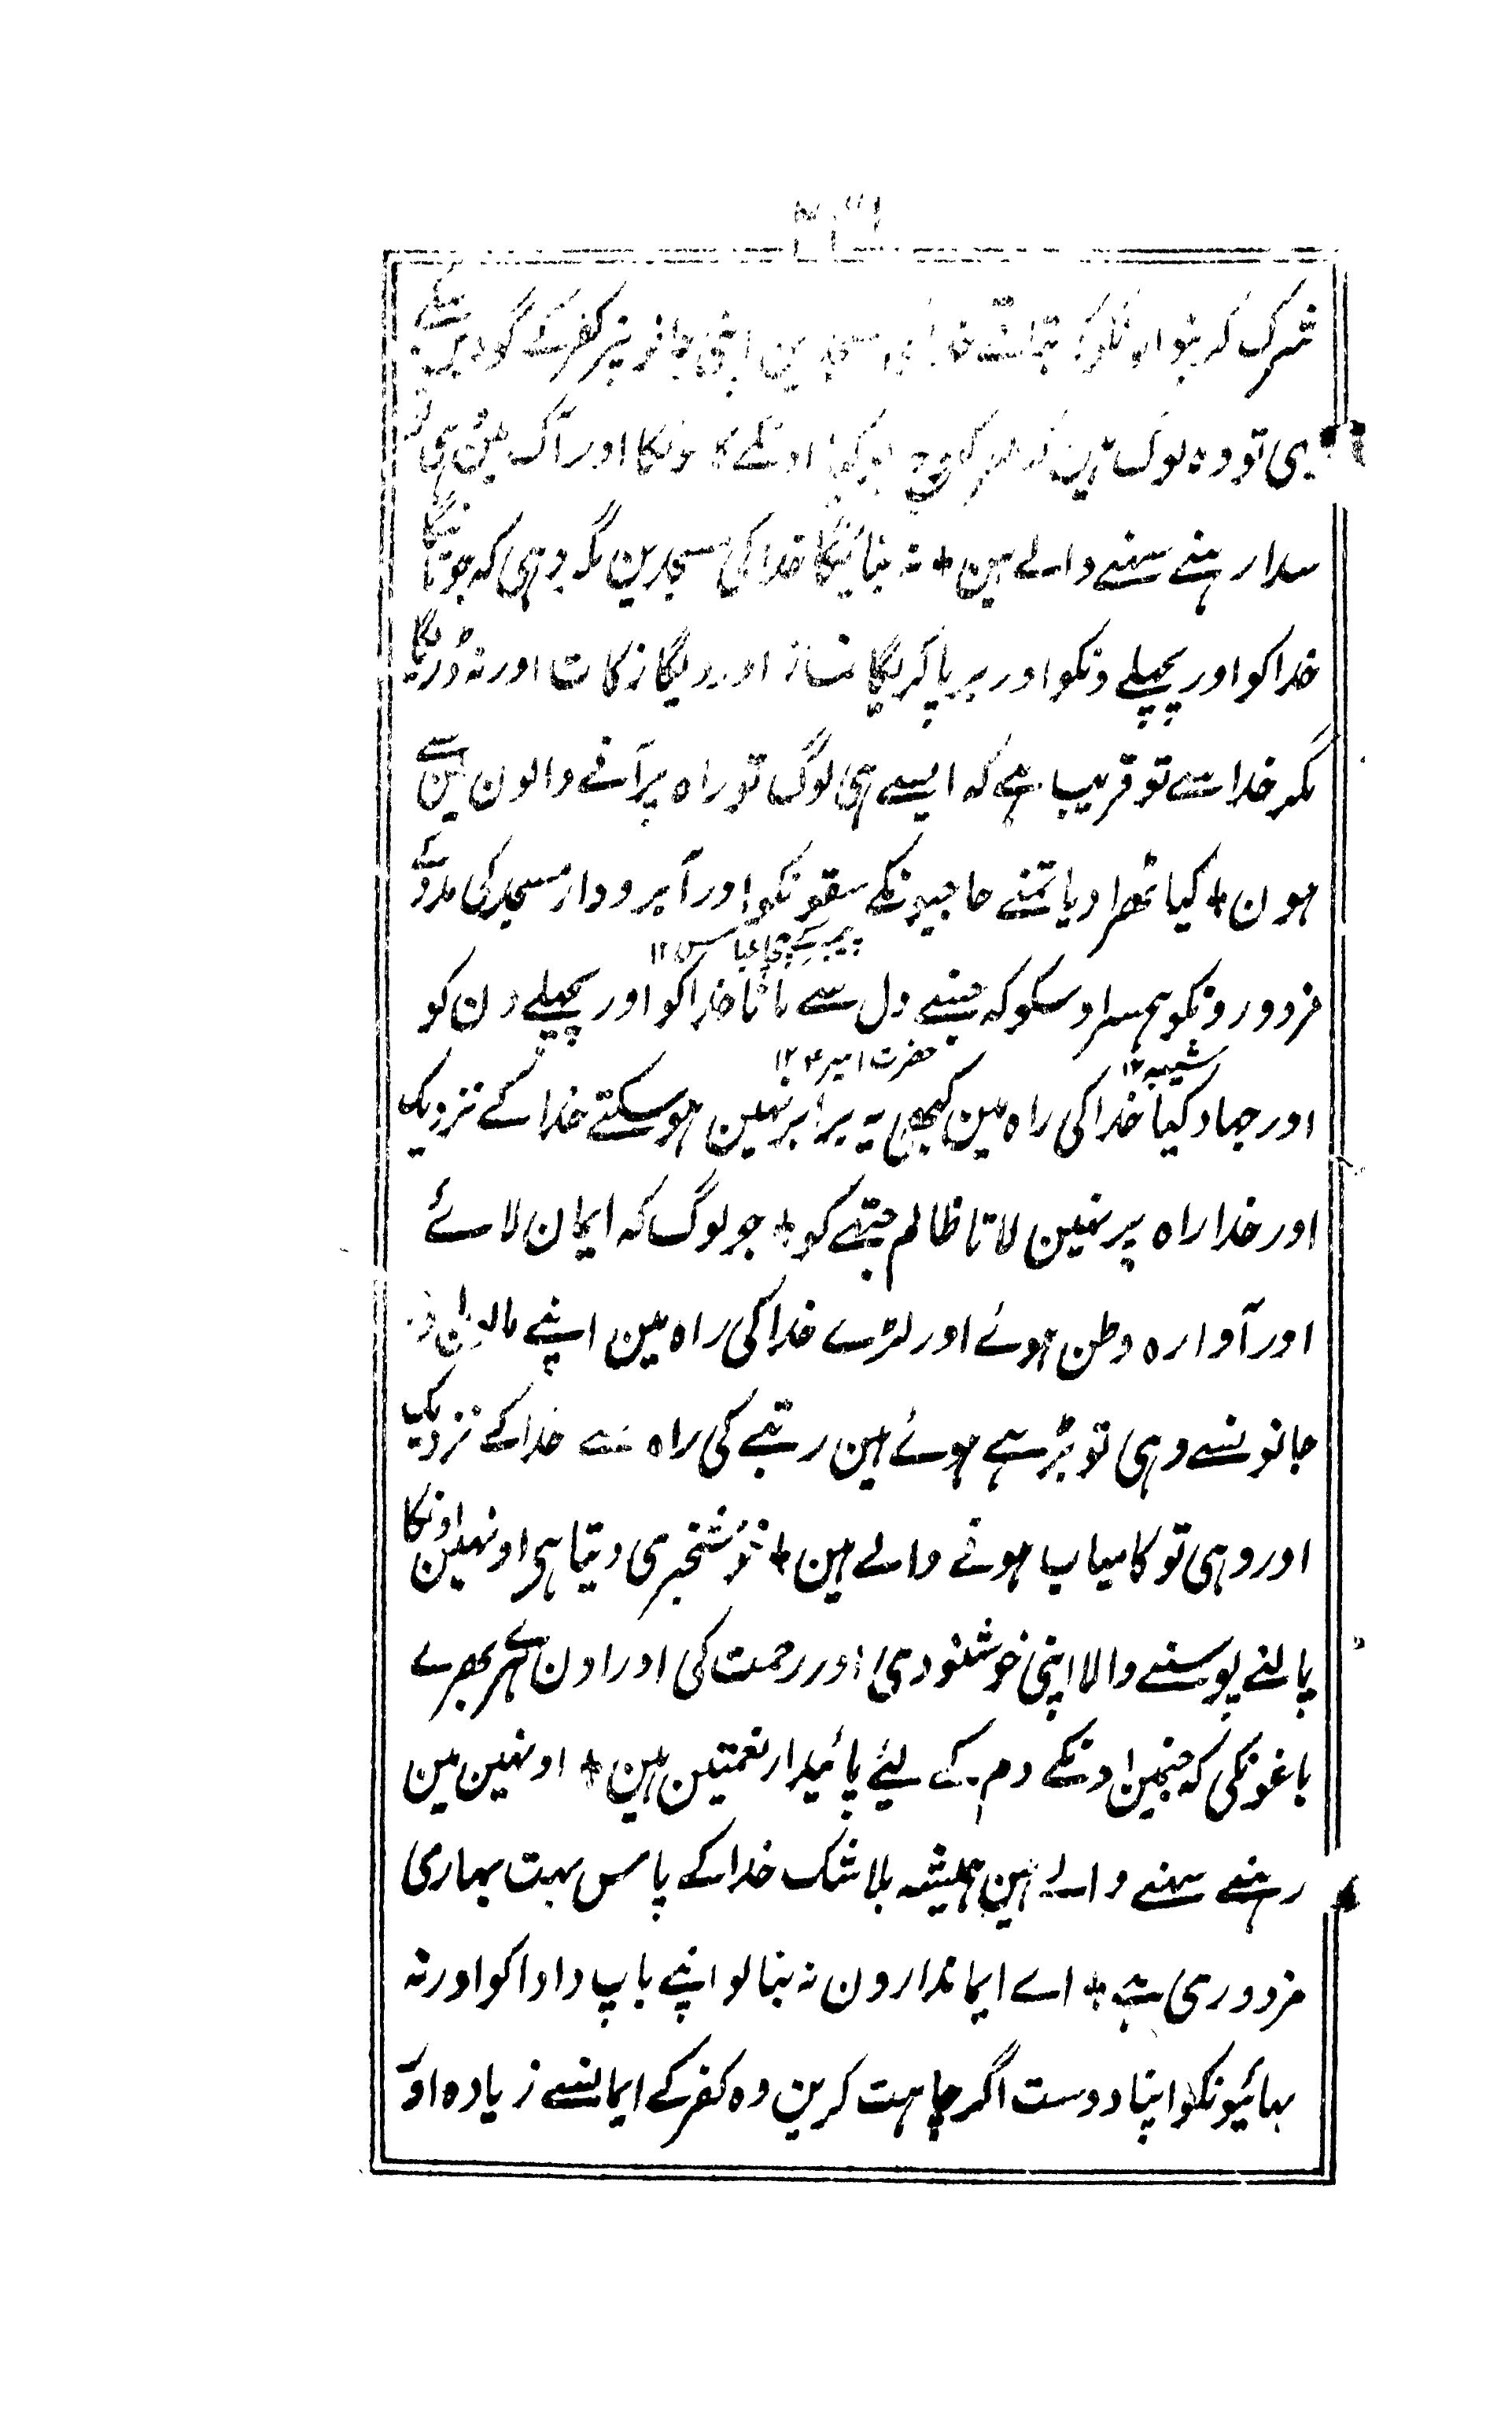 شرک کرنیوالونکو کہ بنائین خدا کی مسجدین اپنی جانونپر کفر کے گواہ بنکے
یہی تو وہ لوگ ہین کہ اونکے کامونکا اور آگ مین ہی تو
سدا رہنے سہنے والے ہین + نہ بنائیگا خدا کی مسجدین مگر وہی کہ جو مانیگا
خدا کو اور پچھلے دنکو اور برپا کریگا نماز اور دیگا زکات اور نہ ڈریگا
مگر خدا سے تو قریب ہے کہ ایسے ہی لوگ تو راہ پر آنے والون مین سے
ہون + کیا ٹھرا دیا تمنے حاجیونکے سقونکو اور آبرودار مسجد کی مدد کے
پیمبر کے چچا عباس ۱۲
مزدورونکو ہمسر اوسکو کہ جسنے دل سے مانا خدا کو اور پچھلے دن کو
شیبہ ۱۲ حضرت امیر ع ۱۲
اور جہاد کیا خدا کی راہ مین کبھی یہ برابر نہین ہو سکتے خدا کے نزدیک
اور خدا راہ پر نہین لاتا ظالم جتھے کو + جو لوگ کہ ایمان لائے
اور آوارہ وطن ہوئے اور لڑے خدا کی راہ مین اپنے مالون اور
جانونسے وہی تو بڑھے ہوئے ہین رتبے کی راہ سے خدا کے نزدیک
اور وہی تو کامیاب ہونے والے ہین + خوشخبری دیتا ہی اونہین اونکا
پالنے پوسنے والا اپنی خوشنودی اور رحمت کی اور اون ہرے بھرے
باغونکی کہ جنمین اونکے دم کے لیئے پائیدار نعمتین ہین + اونہین مین
رہنے سہنے والے ہین ہمیشہ بلا شک خدا کے پاس بہت بہاری
مزدوری ہے + اے ایماندارون نہ بنا لو اپنے باپ دادا کو اور نہ
بہائیونکو اپنا دوست اگر چاہت کرین وہ کفر کے ایمانسے زیادہ اور